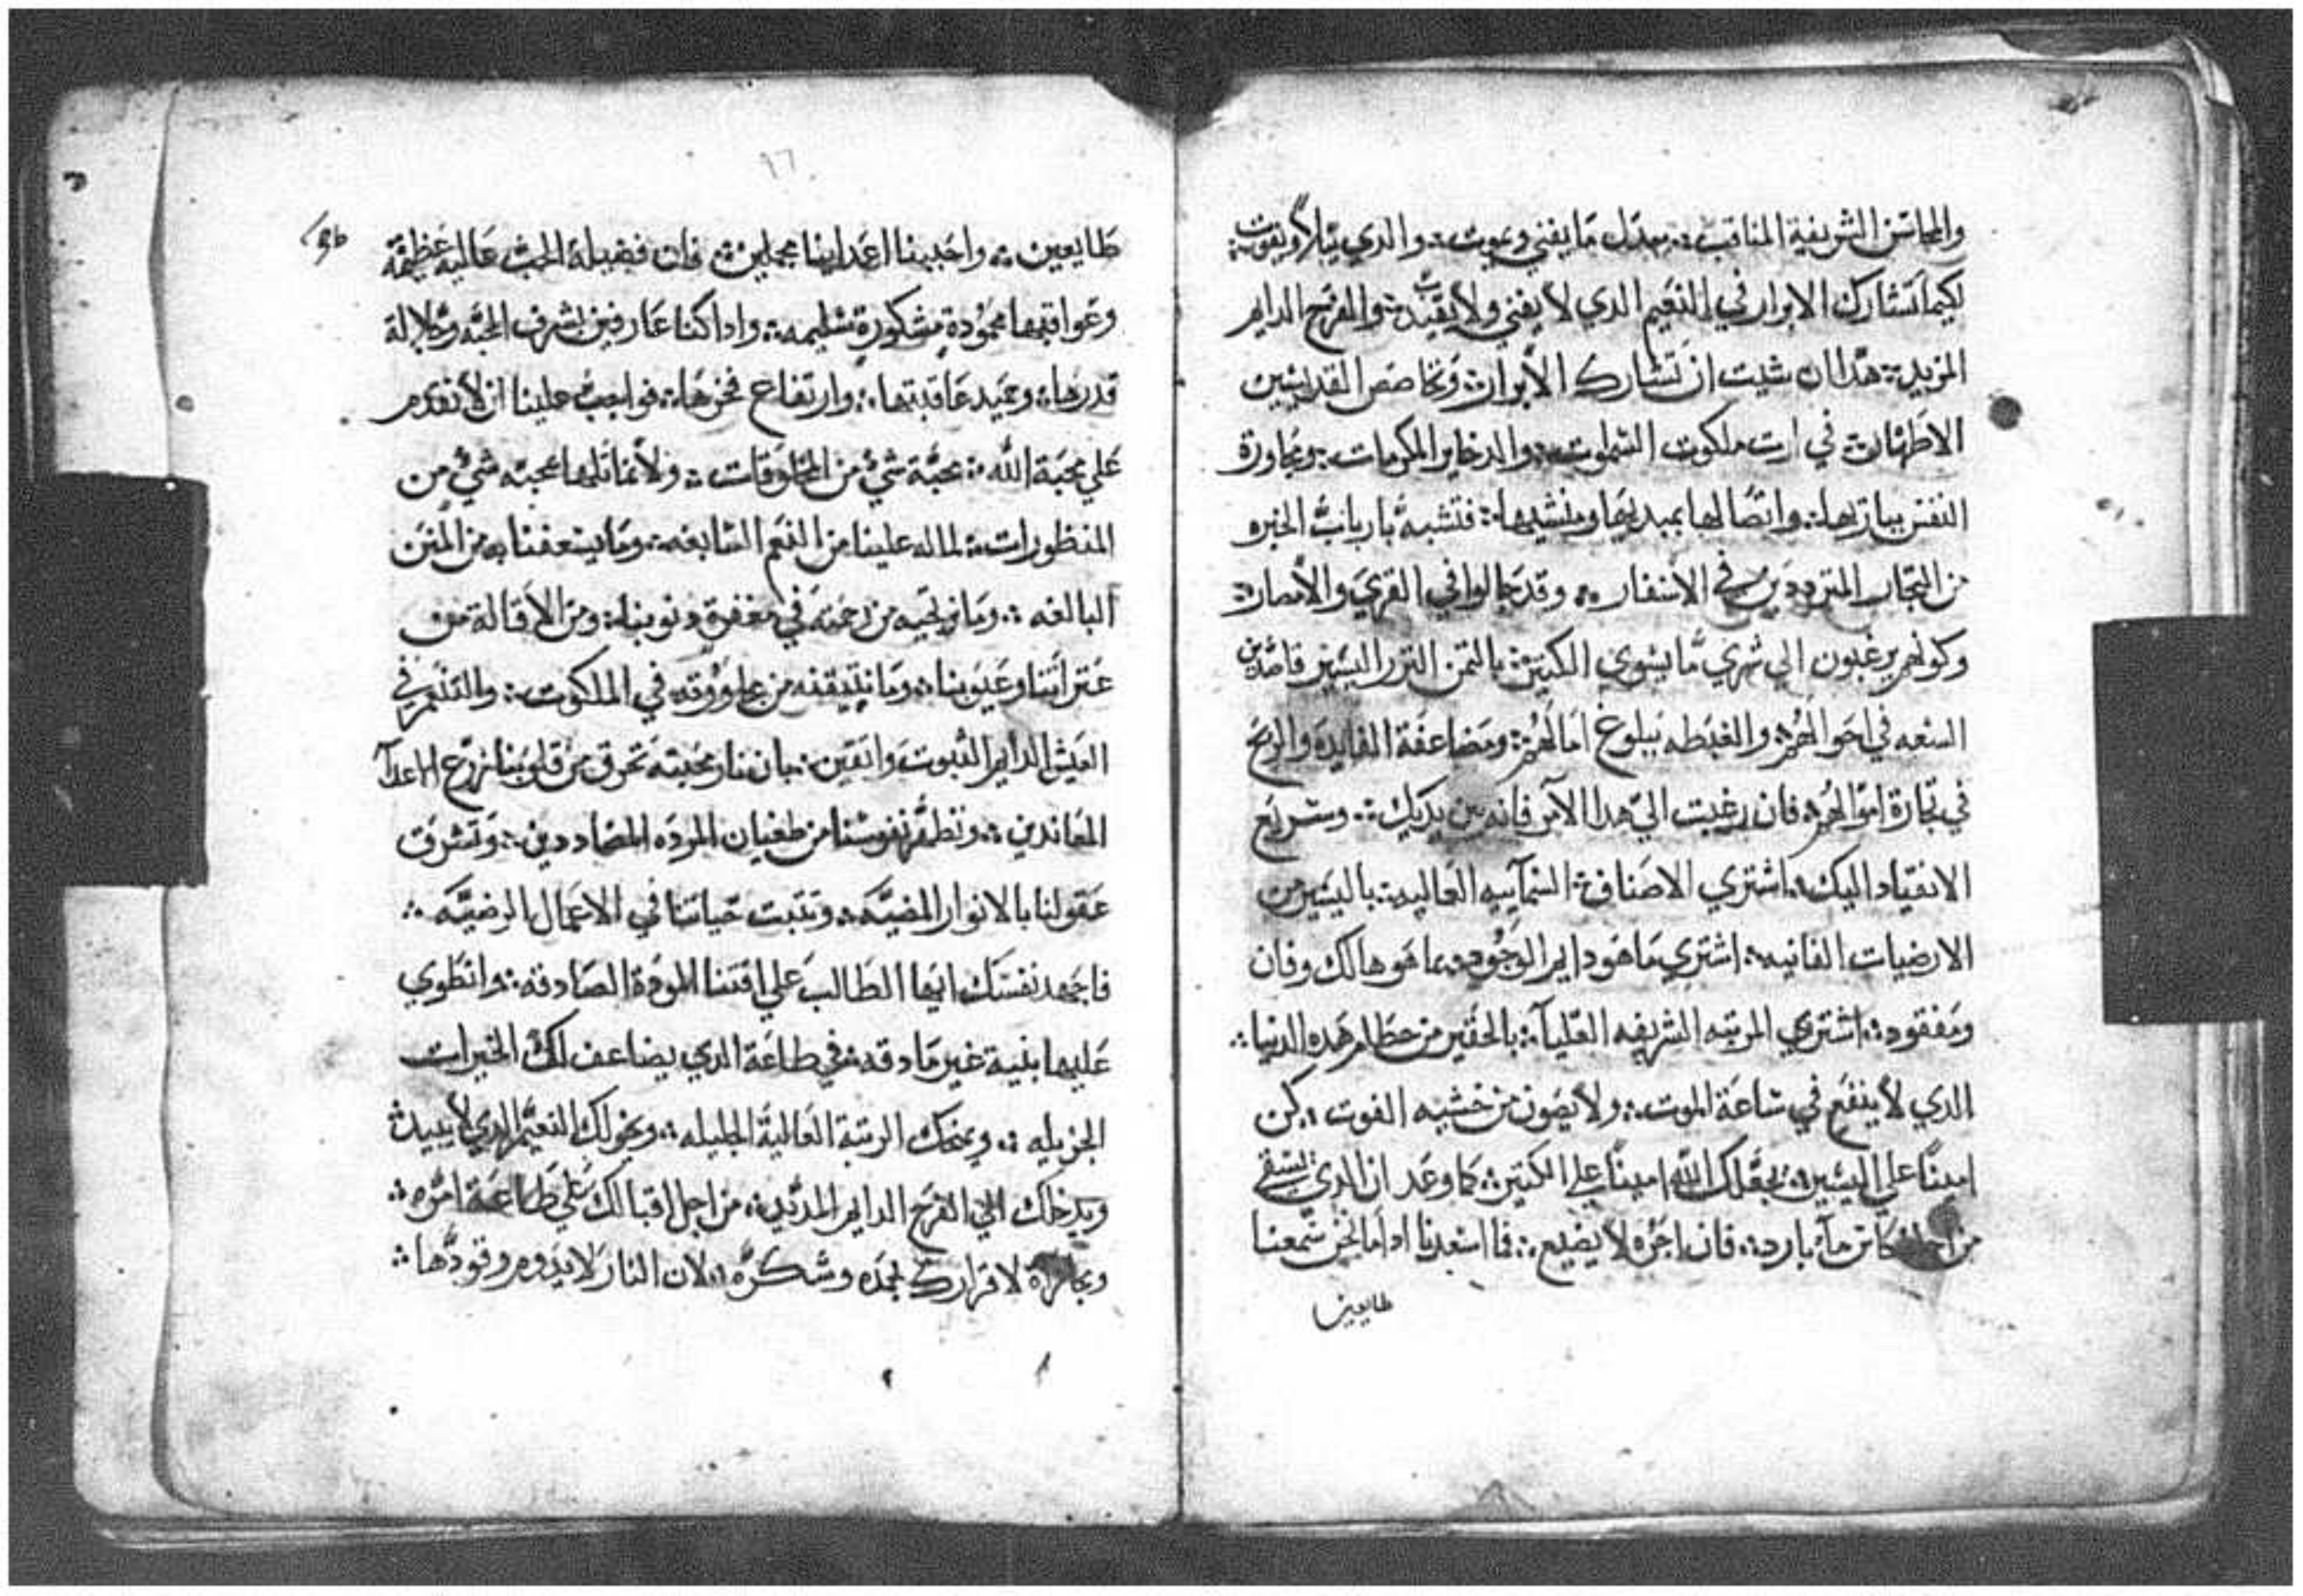 والمحاسن الشريفة المناقب ܀ بدل ما يفني ويموت ܀ والدي يبلا ويفوت ܀
لكيما تشارك الابرار في النعيم الدي لا يفني ولا يفوت ܀ والفرح الدايم
المزيد ܀ هدا ان شيت ان تشارك الأبرار ܀ وتخاصص القديسين
الاطهار ܀ في ارت ملكوت السموات ܀ والدخاير المكرمات ܀ ومجاورة
النفس بباريها ܀ واتصالها بمبديها ومنشيها ܀ فتشبه بارباب الخبره
من التجار المترددين في الاسفار ܀ وقد جالوا في القري والأمصار ܀
وكونهم يرغبون الي شري ما يسوي الكتير ܀ بالتمن النزر اليسير قاصدين
السعه في احوالهم ܀ والغبطه ببلوغ امالهم ܀ ومضاعفة الفايده والربح
في تجارة اموالهم ܀ فان رغبت الي هدا الآمر فانه بين يديك ܀ وسريع
الانقياد اليك ܀ اشتري الاصناف السمآييه العاليه ܀ باليسير من
الارضيات الفانيه ܀ اشتري ما هو دايم الوجود بما هو هالك وفان
ومفقود ܀ اشتري المرتبه الشريفه العليآ ܀ بالحقير من حطام هده الدنيا ܀
الدي لا ينفع في ساعة الموت ܀ ولا يصون من خشيه الفوت ܀ كن
امينًا علي اليسير ܀ يجعلك الله امينًا علي الكتير ܀ كما وعد ان الدي يسقي
من كاس مآء بارد ܀ فان اجره لا يضيع ܀ فما اسعدنا ادا ما نحن سمعنا
طايعين
طايعين ܀ واحببنا اعداينا مجملين ܀ فان فضيلة الحب عاليه عظيمة
وعواقبها محمودة مشكورة سليمه ܀ وادا كنا عارفين بشرف المحبه وجلالة
قدرها ܀ وحميد عاقبتها ܀ وارتفاع فخرها ܀ فواجب علينا ان لا نقدم
علي محبة الله ܀ محبة شيء من المخلوقات ܀ ولا تماتلها محبه شيء من
المنظورات ܀ لما له علينا من النعم السابغه ܀ وما يسعفنا به من المنن
البالغه ܀ وما نرتجيه من رحمته في مغفرة دنوبنا ܀ ومن الاقالة من
عتراتنا وعيوبنا ܀ وما نتيقنه من علو وعده في الملكوت ܀ والتنعم في
العيش الدايم التبوت واتقين ܀ بان نار محبته تحرق من قلوبنا زرع الاعدآ
المعاندين ܀ وتطهر نفوسنا من طغيان المرده المضاددين ܀ وتشرق
عقولنا بالانوار المضيه ܀ وتتبت حياتنا في الاعمال الرضيه ܀
فاجهد نفسك ايها الطالب علي اقتنا المودة الصادقه ܀ وانطوي
عليها بنية غير مادقه ܀ في طاعة الدي يضاعف لك الخيرات
الجزيله ܀ ويمنحك الرتبة العالية الجليله ܀ ويخولك النعيم الدي لا يبيد ܀
ويدخلك الي الفرح الدايم المديد ܀ من اجل اقبالك علي طاعة امره ܀
لاقرارك بمجده وشكره ܀ لان النار لا يدوم وقودها ܀